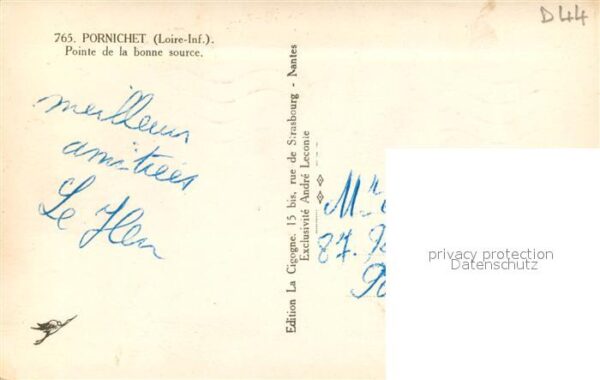 D44
765. PORNICHET (Loire-Inf.).
Pointe de la bonne source.
meilleurs
amitiées
Le
Edition La Cigogne, 15 bis, rue de Strasbourg - Nantes
Exclusivité André Leconie
Mr
87.
privacy protection
Datenschutz